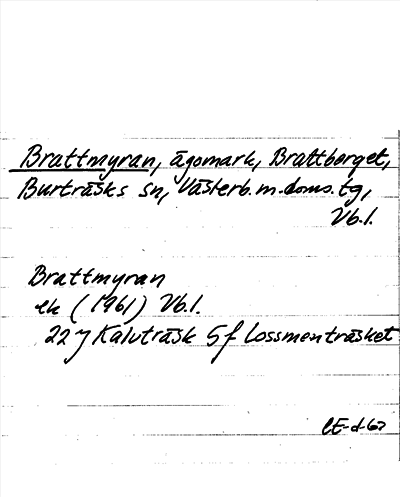 Brattmyran, ägomark, Brattberget,
Burträsks sn, Västerb.m.doms.tg,
Vb.l.
Brattmyran
ek (1961) Vb.l.
22 J Kalvträsk 5f Lossmenträsket